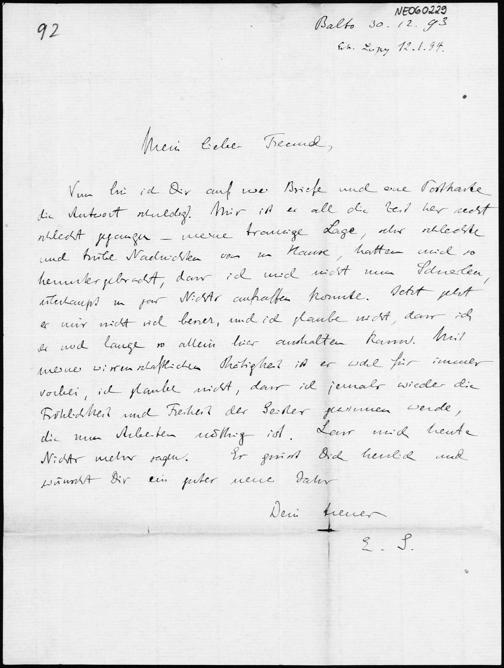 NEO60229
92
Balto 30.12.93
Erh. Leipzig 12.1.94.
Mein lieber Freund,
Nun bin ich Dir auf zwei Briefe und eine Postkarte
die Antwort schuldig. Mir ist es all die Zeit her recht
schlecht gegangen – meine traurige Lage, sehr schlechte
und trübe Nachrichten von zu Hause, hatten mich so
heruntergebracht, dass ich mich nicht zum Schreiben,
überhaupt zu gar Nichts aufraffen konnte. Jetzt geht
es mir nicht viel besser, und ich glaube nicht, dass ich
es noch lange so allein hier aushalten kann. Mit
meiner wissenschaftlichen Thätigkeit ist es wohl für immer
vorbei, ich glaube nicht, dass ich jemals wieder die
Fröhlichkeit und Freiheit des Geistes gewinnen werde,
die zum Arbeiten nöthig ist. Lass mich heute
Nichts mehr sagen. Es grüsst Dich herzlich und
wünscht Dir ein gutes neues Jahr
Dein treuer
E. S.